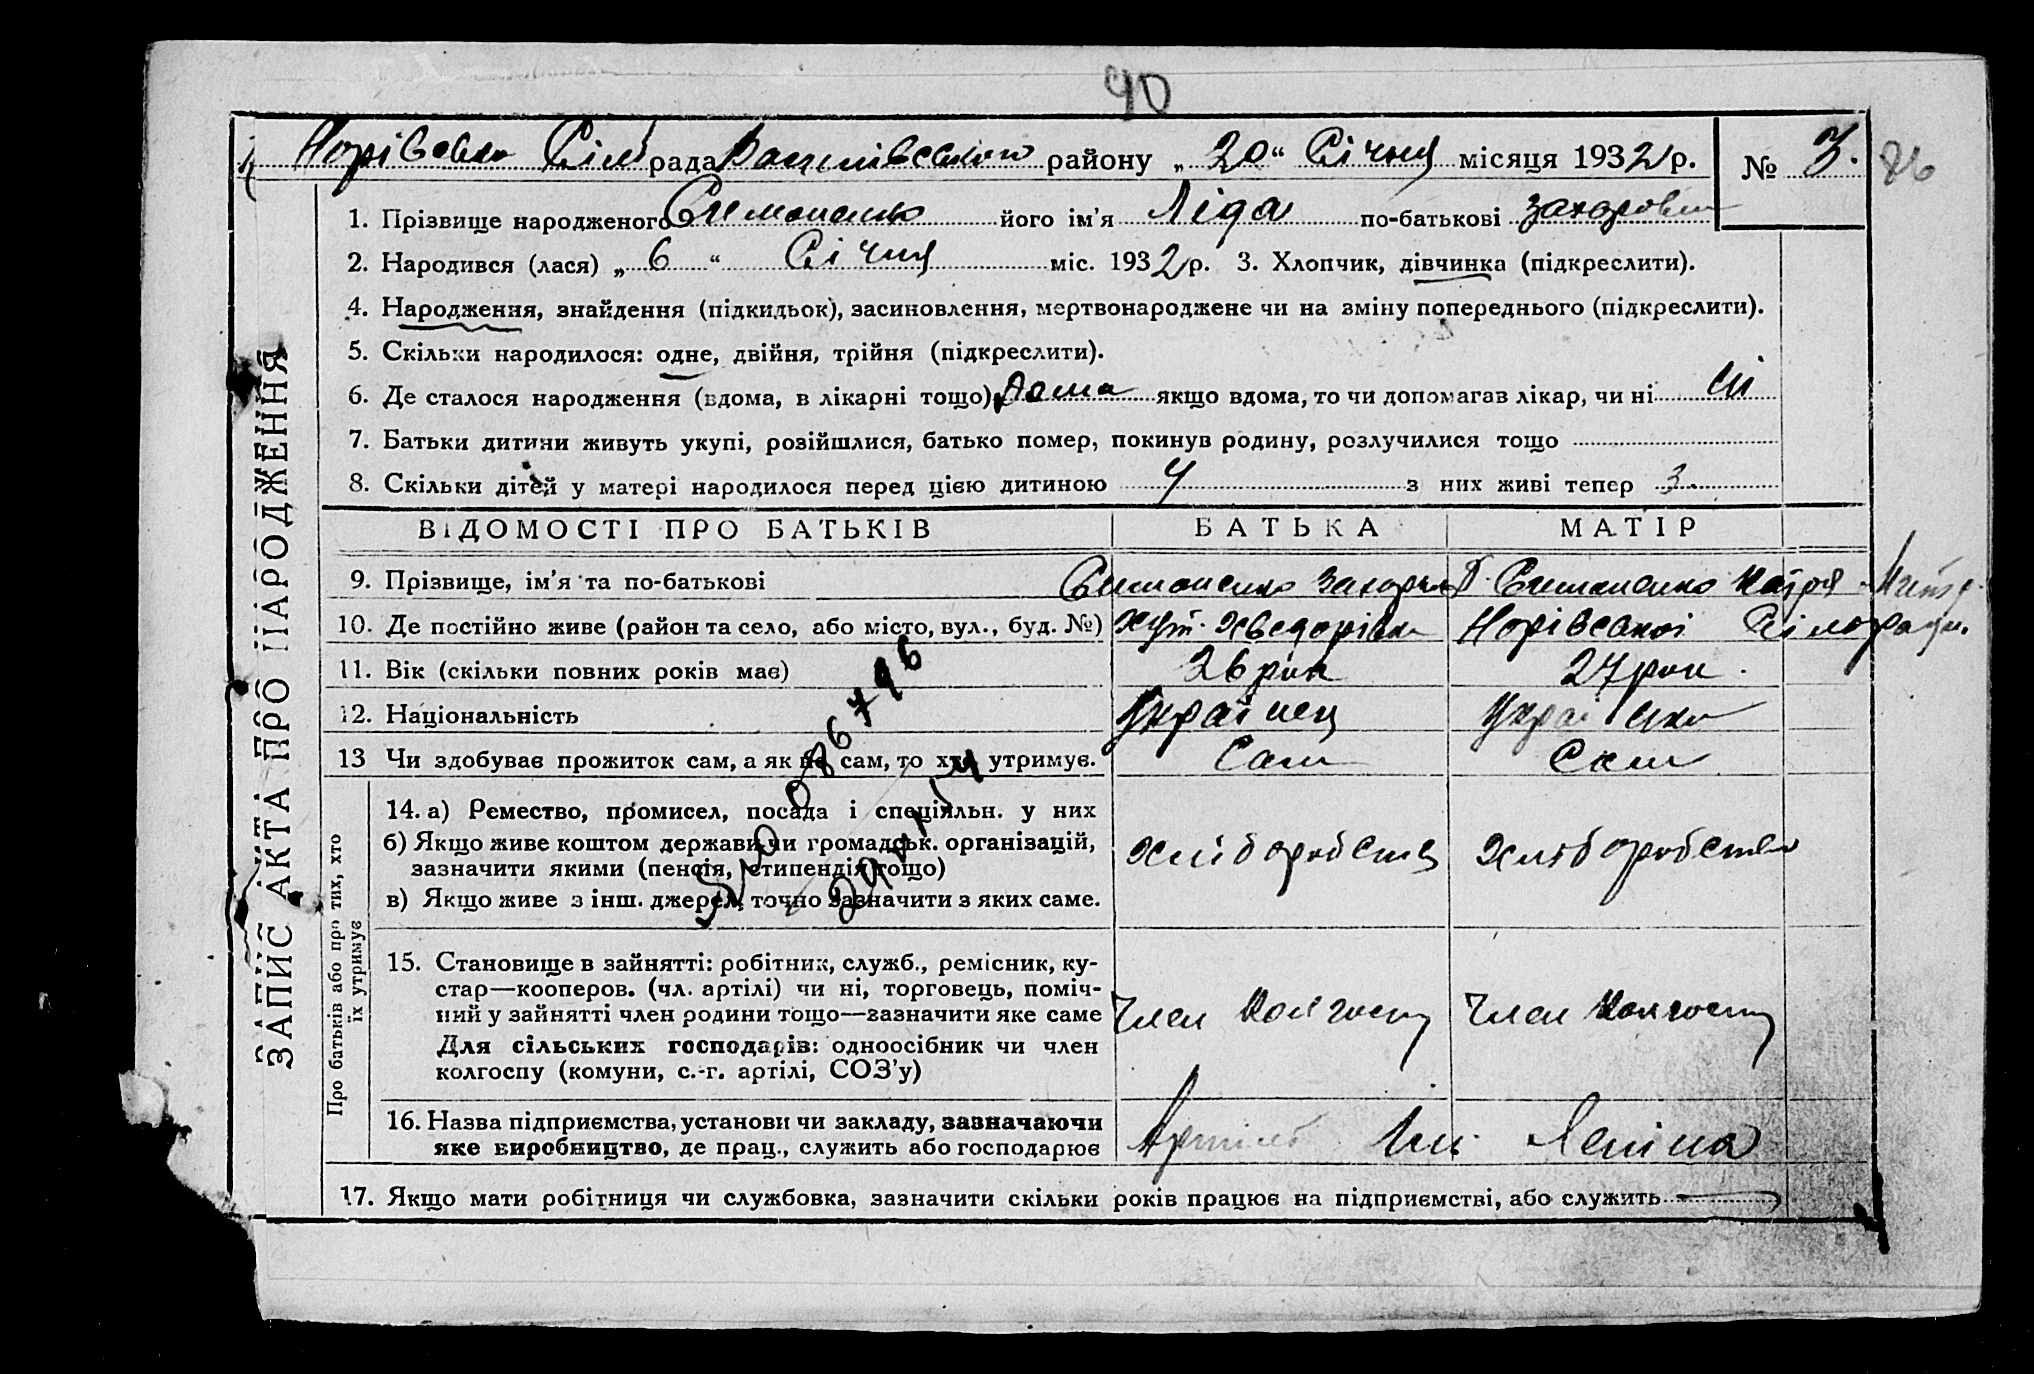 90
Норівська Сільрада району „20“ Січня місяця 1932 р. № 3.
86
1. Прізвище народженого Симоненко його ім’я Ліда по-батькові Захаровна
2. Народився (лася) „6“ Січня міс. 1932 р. 3. Хлопчик, дівчинка (підкреслити).
4. Народження, знайдення (підкидьок), засиновлення, мертвонароджене чи на зміну попереднього (підкреслити).
5. Скільки народилося: одне, двійня, трійня (підкреслити).
6. Де сталося народження (вдома, в лікарні тощо) Дома якщо вдома, то чи допомагав лікар, чи ні ні
7. Батьки дитини живуть укупі, розійшлися, батько помер, покинув родину, розлучилися тощо
8. Скільки дітей у матері народилося перед цією дитиною 4 з них живі тепер 3.
ВІДОМОСТІ ПРО БАТЬКІВ БАТЬКА МАТІР
9. Прізвище, ім’я та по-батькові Симоненко Захарій Симоненко
10. Де постійно живе (район та село, або місто, вул., буд. №) хут. Хведорівка Норівської Сілоради.
11. Вік (скільки повних років має) 26 рок 27 рок.
12. Національність Українец Українка
13 Чи здобуває прожиток сам, а як не сам, то хто утримує. Сам Сам
14. а) Ремество, промисел, посада і спеціяльн. у них
б) Якщо живе коштом держави чи громадськ. організацій,
зазначити якими (пенсія, стипендія тощо)
в) Якщо живе з інш. джерел, точно зазначити з яких саме.
хліборобство хліборобство
15. Становище в зайнятті: робітник, служб., ремісник, ку-
стар—кооперов. (чл. артілі) чи ні, торговець, поміч-
ний у зайнятті член родини тощо—зазначити яке саме
Для сільських господарів: одноосібник чи член
колгоспу (комуни, с.-г. артілі, СОЗ’у)
Член Колгоспу Член Колгоспу
16. Назва підприємства, установи чи закладу, зазначаючи
яке виробництво, де прац., служить або господарює
Артіль Ім. Леніна
17. Якщо мати робітниця чи службовка, зазначити скільки років працює на підприємстві, або служить
ЗАПИС АКТА ПРО НАРОДЖЕННЯ
Про батьків або про тих, хто
їх утримує
086796